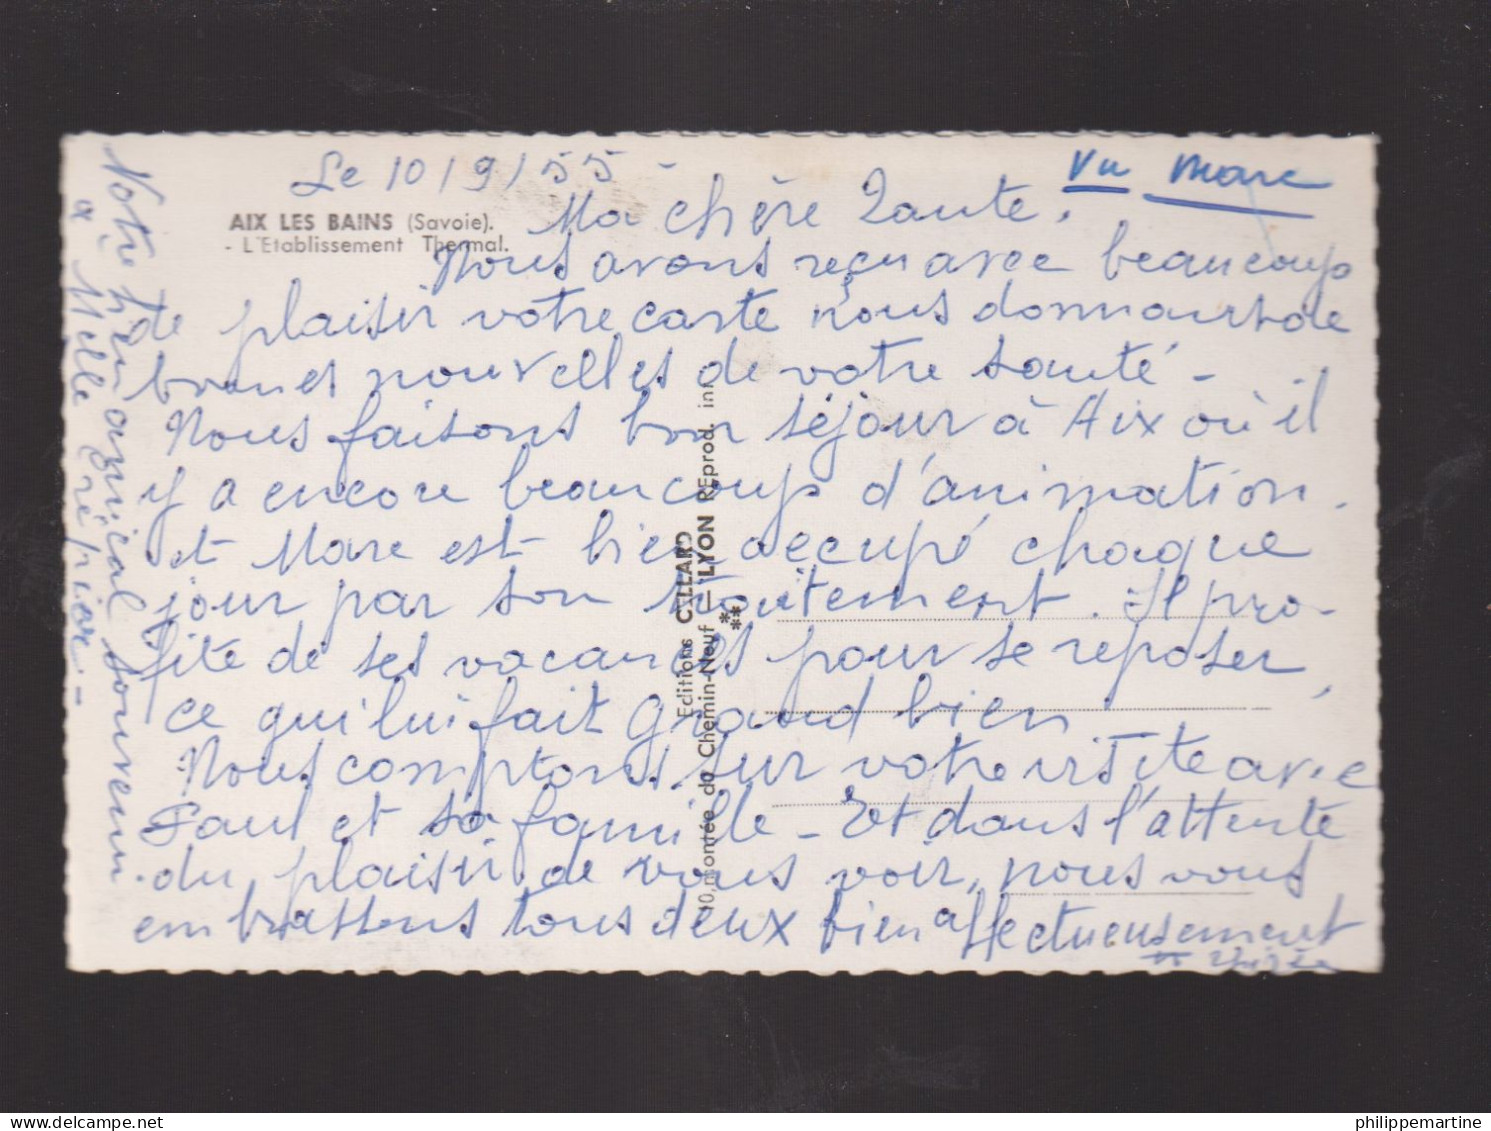 Le 10/9/55 -
Vu Marc
AIX LES BAINS (Savoie).
- L'Etablissement Thermal.
Ma chère Tante,
Nous avons reçu avec beaucoup
de plaisir votre carte nous donnant de
bonnes nouvelles de votre santé -
Nous faisons bon séjour à Aix où il
y a encore beaucoup d'animation.
et Marc est bien occupé chaque
jour par son traitement. Il pro-
fite de ses vacances pour se reposer,
ce qui lui fait grand bien
Nous comptons sur votre visite avec
Paul et sa famille - Et dans l'attente
du plaisir de vous voir, nous vous
embrassons tous deux bien affectueusement
Notre bien amical souvenir
à Melle
Editions CELLARD
10, montée du Chemin-Neuf - LYON REprod. int.
philippemartine